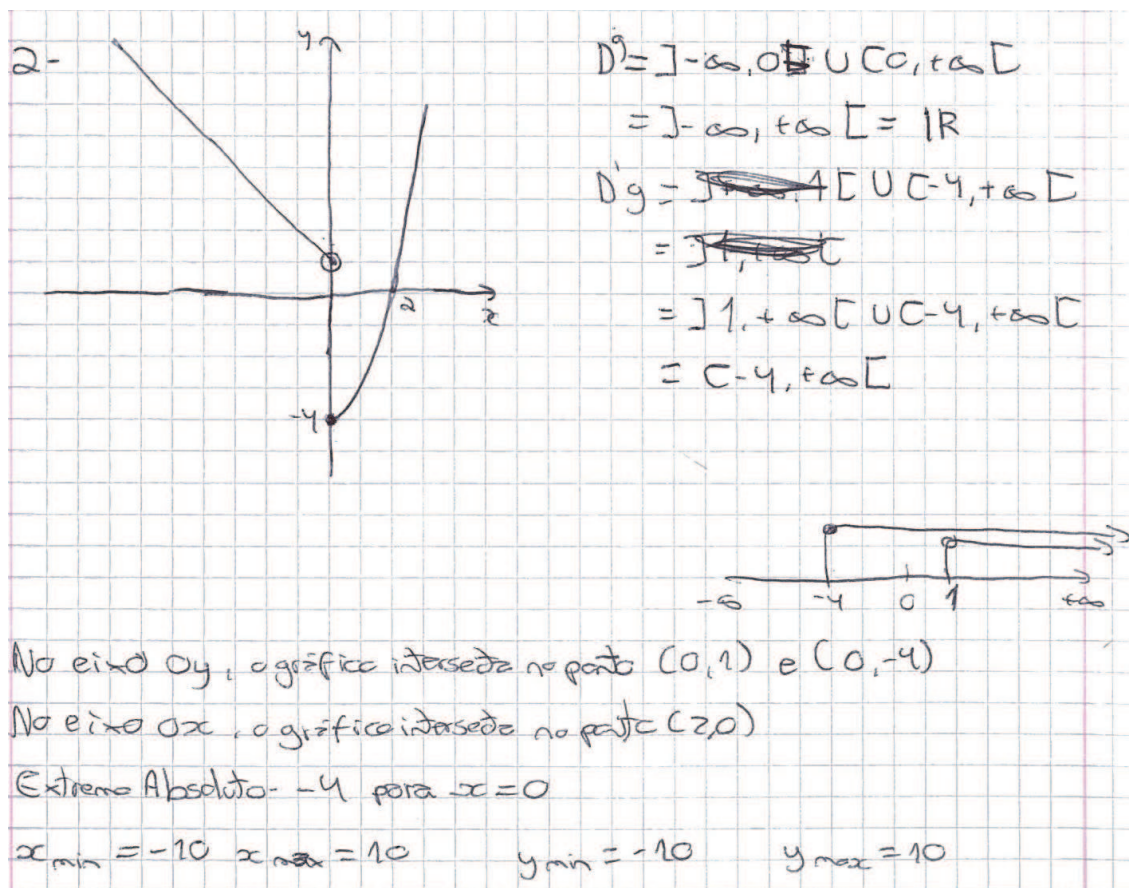 2-
y
2
x
-4
Dg = ]-∞, 0[ ∪ [0, +∞[
= ]-∞, +∞[ = IR
D'g = ]+∞, 1[ ∪ [-4, +∞[
= ]1, +∞[
= ]1, +∞[ ∪ [-4, +∞[
= [-4, +∞[
-∞ -4 0 1 +∞
No eixo Oy, o gráfico interseta no ponto (0,1) e (0,-4)
No eixo Ox, o gráfico interseta no ponto (2,0)
Extremo Absoluto- -4 para x=0
x min = -10 x max = 10 y min = -10 y max = 10